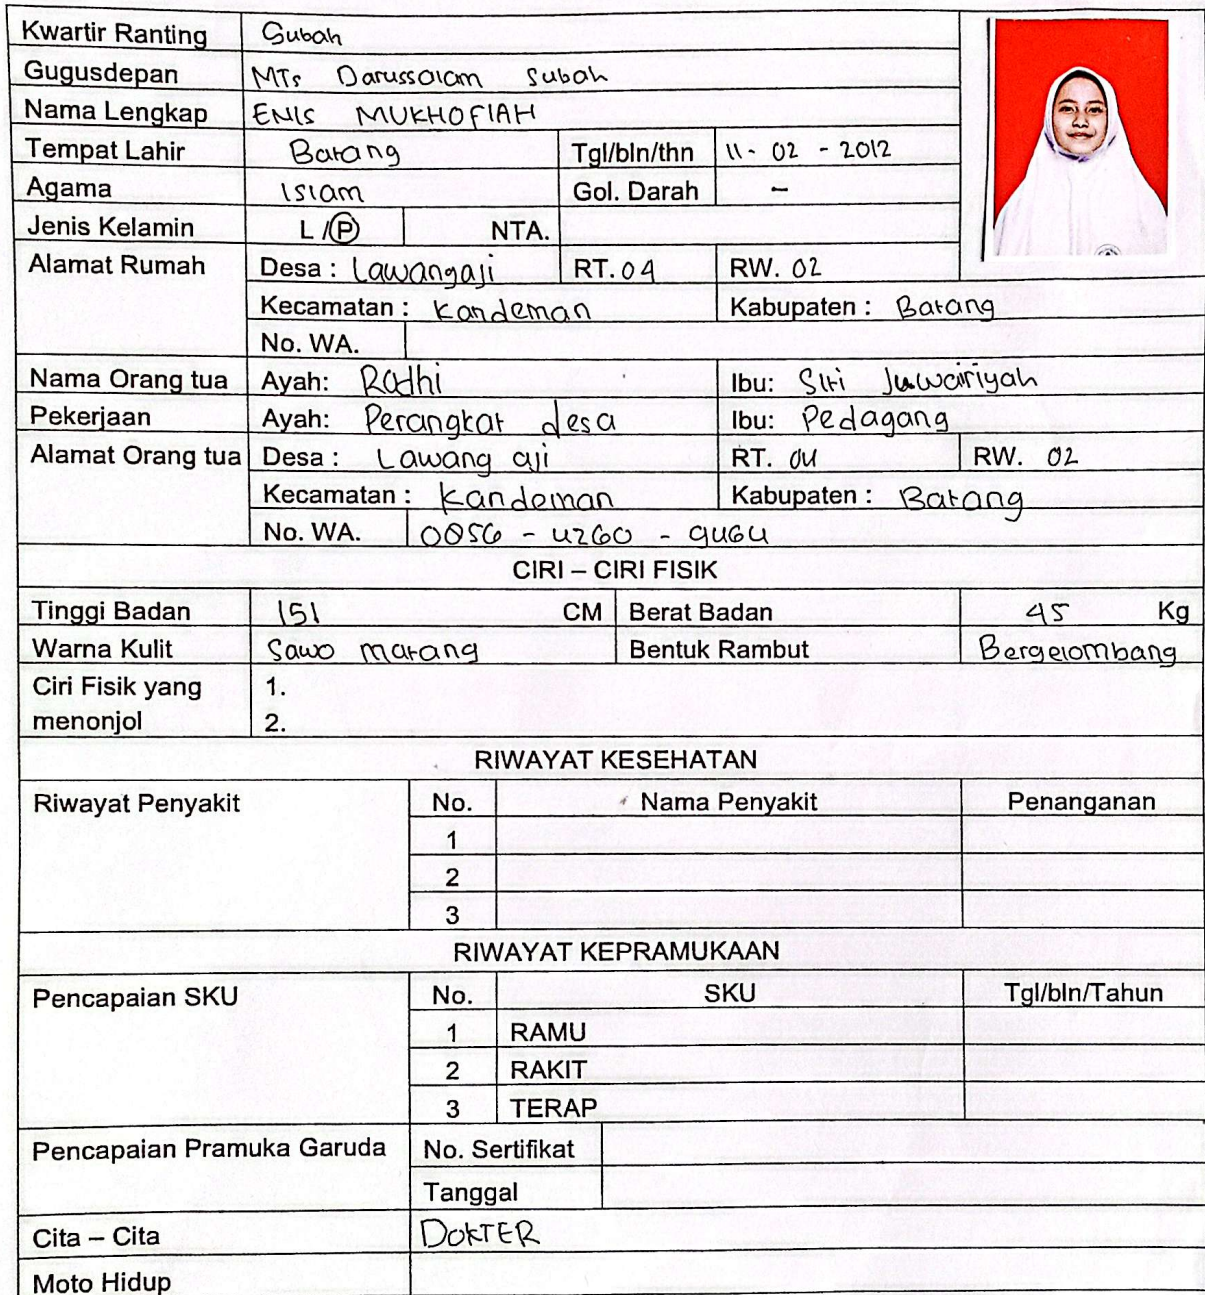 Kwartir Ranting Subah
Gugusdepan MTs Darussalam Subah
Nama Lengkap ENIS MUKHOFIAH
Tempat Lahir Batang Tgl/bln/thn 11 - 02 - 2012
Agama Islam Gol. Darah -
Jenis Kelamin L / P NTA.
Alamat Rumah Desa : Lawangaji RT. 04 RW. 02
Kecamatan : Kandeman Kabupaten : Batang
No. WA.
Nama Orang tua Ayah: Radhi Ibu: Siti Juwairiyah
Pekerjaan Ayah: Perangkat desa Ibu: Pedagang
Alamat Orang tua Desa : Lawang aji RT. 04 RW. 02
Kecamatan : Kandeman Kabupaten : Batang
No. WA. 0856 - 4260 - 9464
CIRI – CIRI FISIK
Tinggi Badan 151 CM Berat Badan 45 Kg
Warna Kulit Sawo matang Bentuk Rambut Bergelombang
Ciri Fisik yang 1.
menonjol 2.
RIWAYAT KESEHATAN
Riwayat Penyakit No. Nama Penyakit Penanganan
1
2
3
RIWAYAT KEPRAMUKAAN
Pencapaian SKU No. SKU Tgl/bln/Tahun
1 RAMU
2 RAKIT
3 TERAP
Pencapaian Pramuka Garuda No. Sertifikat
Tanggal
Cita – Cita DOKTER
Moto Hidup